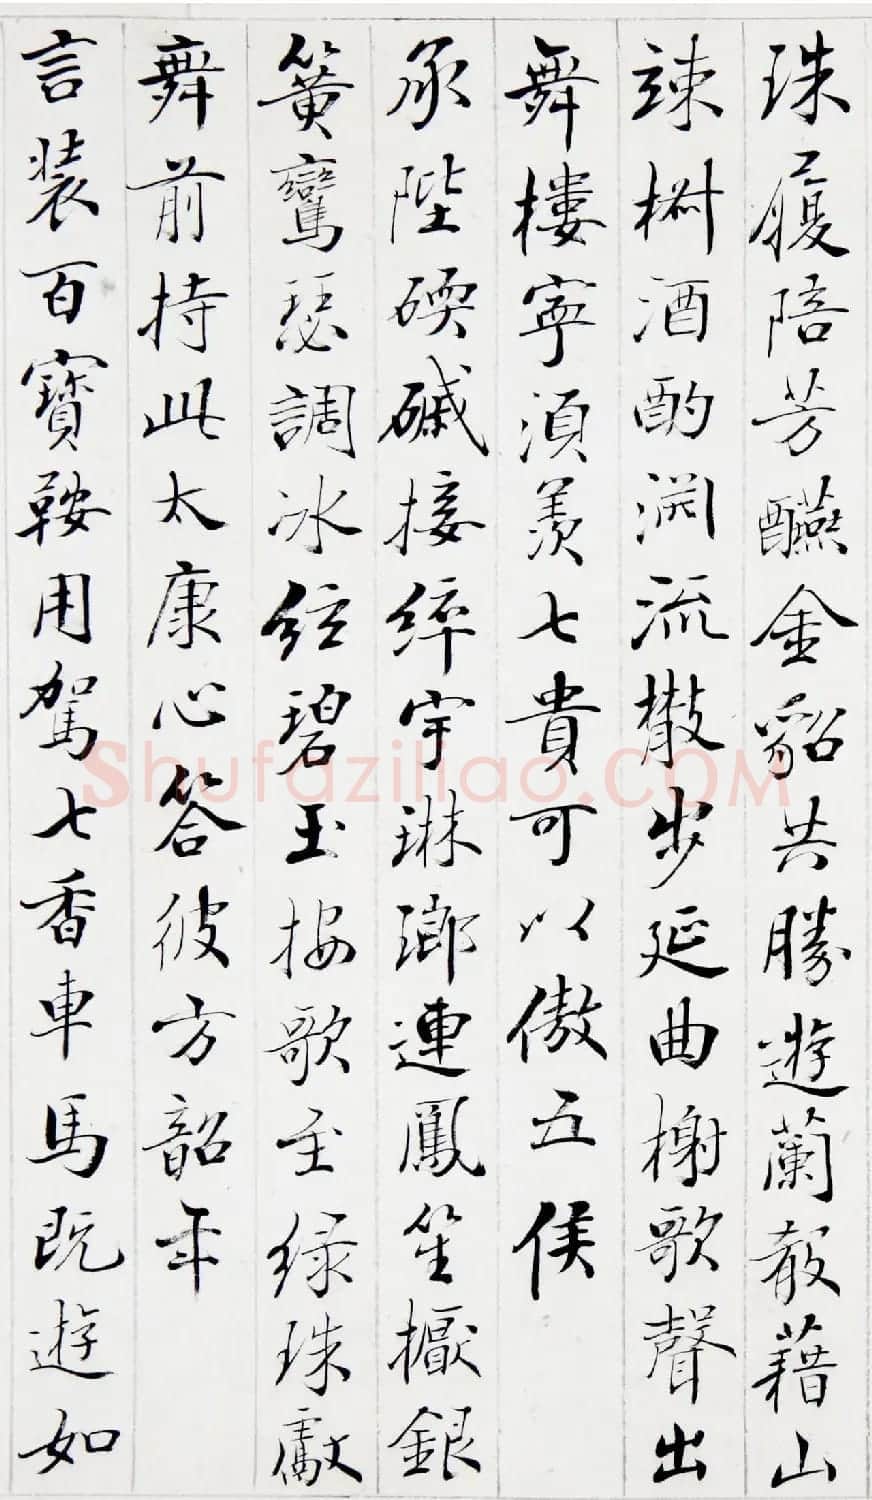 珠履陪芳醼金貂共勝遊蘭殽藉山
竦樹酒酌泂流檝步延曲榭歌聲出
舞樓寧須羨七貴可以傲五侯
承陛碝磩接綷宇琳瑯連鳳笙擫銀
簧鸞瑟調冰絃碧玉按歌至綠珠獻
舞前持此太康心答彼方韶年
言裝百寶鞍用駕七香車馬既遊如
Shufaziliao.COM